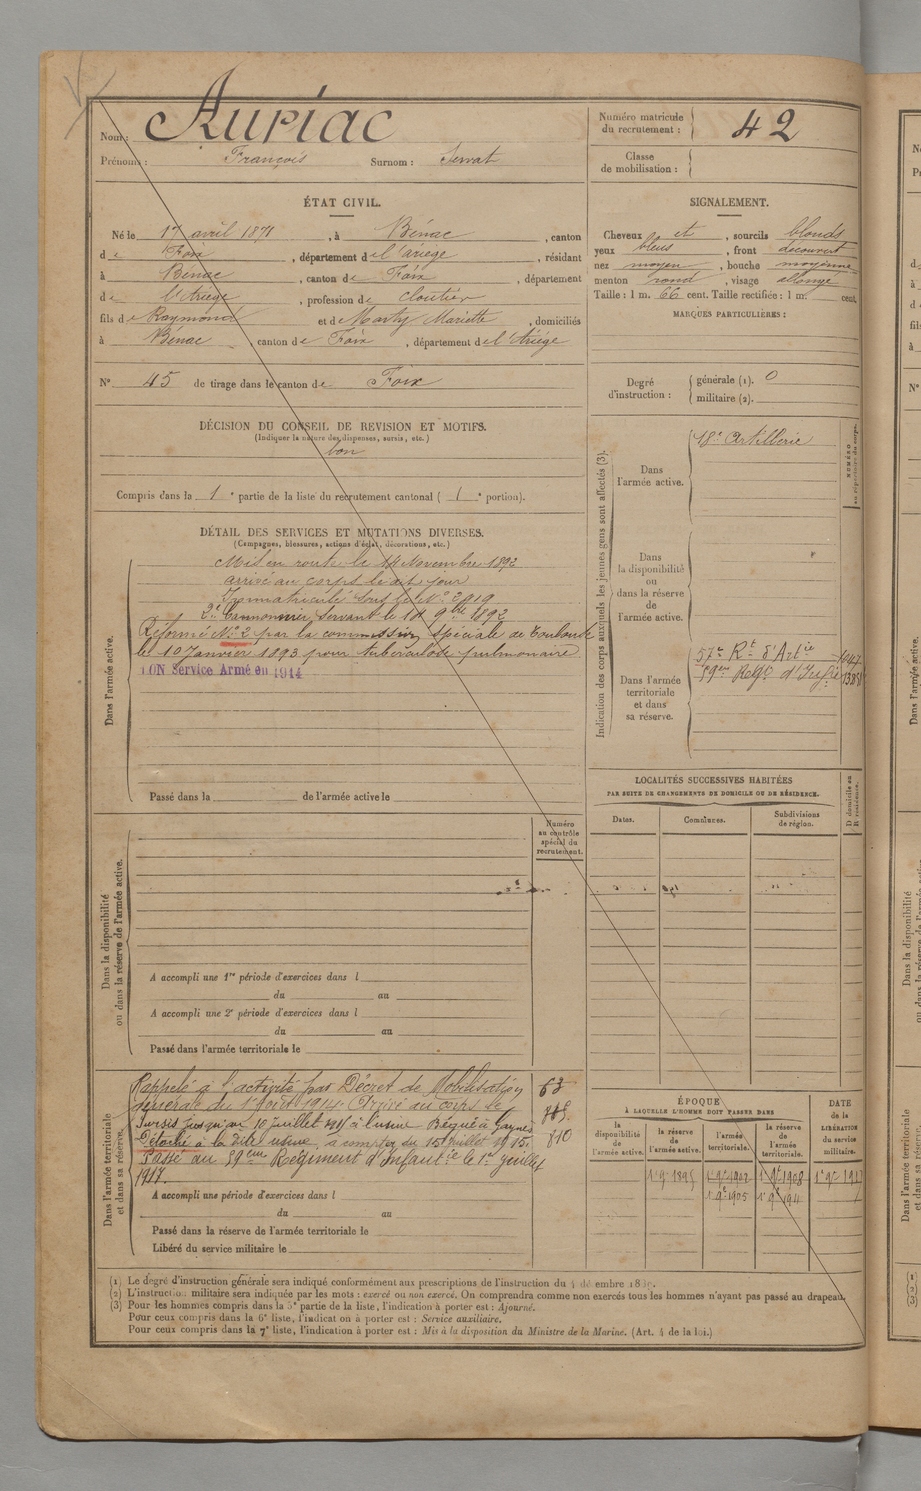 Nom : Auriac
Prénoms : François Surnom : Serrat
Numéro matricule du recrutement : 42
Classe de mobilisation :
ÉTAT CIVIL.
Né le 17 avril 1871, à Bénac, canton
de Foix, département de l'ariège, résidant
à Bénac, canton de Foix, département
de l'Ariège, profession de cloutier
fils de Raymond et de Marty Mariette, domiciliés
à Bénac canton de Foix, département de l'Ariége
N° 45 de tirage dans le canton de Foix
SIGNALEMENT.
Cheveux et, sourcils blonds
yeux bleus, front découvert
nez moyen, bouche moyenne
menton rond, visage allongé
Taille : 1 m. 66 cent. Taille rectifiée : 1 m. cent.
MARQUES PARTICULIÈRES :
Degré d'instruction : générale (1). 0
militaire (2).
DÉCISION DU CONSEIL DE REVISION ET MOTIFS.
(Indiquer la nature des dispenses, sursis, etc.)
bon
Compris dans la 1e partie de la liste du recrutement cantonal ( 1e portion).
DÉTAIL DES SERVICES ET MUTATIONS DIVERSES.
(Campagnes, blessures, actions d'éclat, décorations, etc.)
Dans l'armée active.
Mis en route le 14 Novembre 1892
arrivé au corps le dit jour
Immatriculé sous le N° 2919
2e Cannonier Servant le 14 9bre 1892
Réformé N° 2 par la commission spéciale de Toulouse
le 10 Janvier 1893 pour tuberculose pulmonaire
BON Service Armé en 1914
Passé dans la de l'armée active le
Indication des corps auxquels les jeunes gens sont affectés (3).
NUMÉRO au répertoire du corps.
Dans l'armée active.
18e Artillerie
Dans la disponibilité ou dans la réserve de l'armée active.
Dans l'armée territoriale et dans sa réserve.
57e Rt d'Artie 1047
59eme Regt d'Infie
LOCALITÉS SUCCESSIVES HABITÉES
PAR SUITE DE CHANGEMENTS DE DOMICILE OU DE RÉSIDENCE.
Dates. Communes. Subdivisions de région.
D domicile ou R résidence.
Dans la disponibilité ou dans la réserve de l'armée active.
Numéro au contrôle spécial du recrutement.
A accompli une 1re période d'exercices dans l
du au
A accompli une 2e période d'exercices dans l
du au
Passé dans l'armée territoriale le
Dans l'armée territoriale et dans sa réserve.
Rappelé à l'activité par Décret de Mobilisation
générale du 1er Août 1914. Arrivé au corps le
Sursis jusqu'au 10 juillet 1915 à l'usine Bégué à
Détaché à la dite usine, à compter du 15 Juillet 1915.
Passé au 59eme Régiment d'Infantie le 1er Juillet
1917.
63
785
810
A accompli une période d'exercices dans l
du au
Passé dans la réserve de l'armée territoriale le
Libéré du service militaire le
ÉPOQUE
À LAQUELLE L'HOMME DOIT PASSER DANS
la disponibilité de l'armée active. la réserve de l'armée active. l'armée territoriale. la réserve de l'armée territoriale.
DATE de la LIBÉRATION du service militaire.
1er 9bre 1895 1er 9bre 1902 1er 9bre 1908 1er 9bre 1917
1er 9bre 1905
(1) Le degré d'instruction générale sera indiqué conformément aux prescriptions de l'instruction du 4 décembre
(2) L'instruction militaire sera indiquée par les mots : exercé ou non exercé. On comprendra comme non exercés tous les hommes n'ayant pas passé au drapeau.
(3) Pour les hommes compris dans la 5e partie de la liste, l'indication à porter est : Ajourné.
Pour ceux compris dans la 6e liste, l'indication à porter est : Service auxiliaire.
Pour ceux compris dans la 7e liste, l'indication à porter est : Mis à la disposition du Ministre de la Marine. (Art. 4 de la loi.)